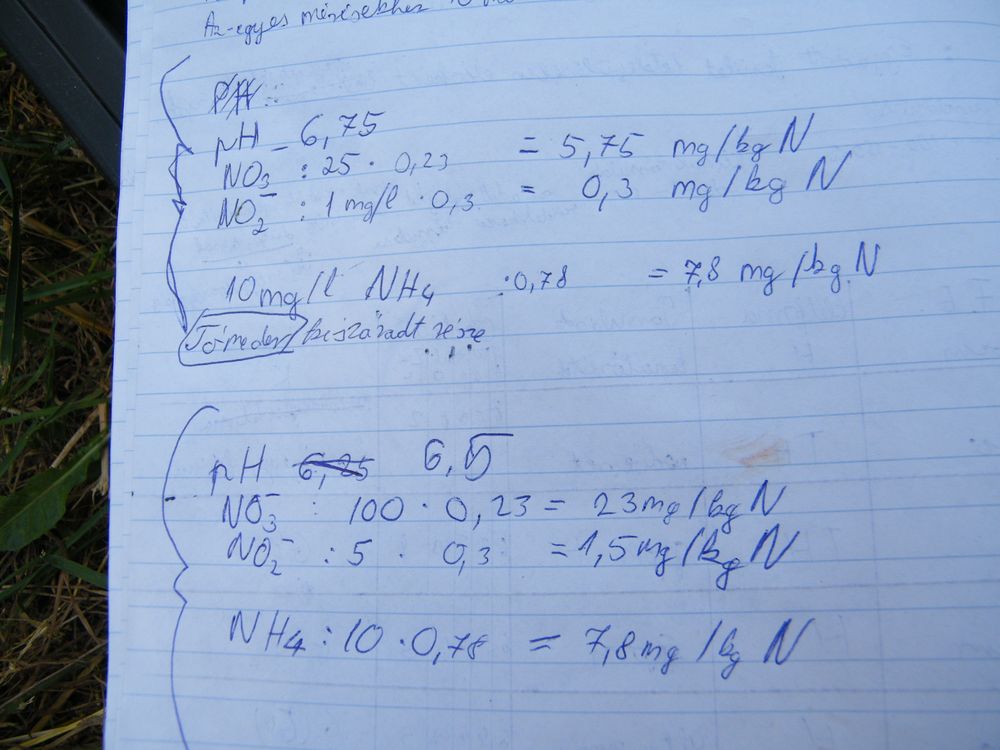 Az egyes mérésekhez 10
pH:
pH - 6,75
NO₃⁻ : 25 · 0,23 = 5,75 mg/kg N
NO₂⁻ : 1 mg/l · 0,3 = 0,3 mg/kg N
10 mg/l NH₄ · 0,78 = 7,8 mg/kg N
Tómeder kiszáradt része
pH 6,25 6,5
NO₃⁻ : 100 · 0,23 = 23 mg/kg N
NO₂⁻ : 5 · 0,3 = 1,5 mg/kg N
NH₄ : 10 · 0,78 = 7,8 mg/kg N